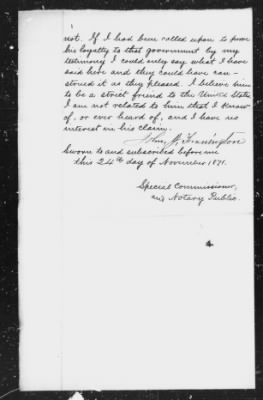 not. If I had been called upon to prove
his loyalty to that government by my
testimony I could only say what I have
said here and they could have con-
strued it as they pleased. I believe him
to be a strict friend to the United States
I am not related to him that I know
of, or ever heard of, and I have no
interest in his claim.
John W.
Sworn to and subscribed before me
this 24th day of November 1871.
Special Commissioner,
and Notary Public.